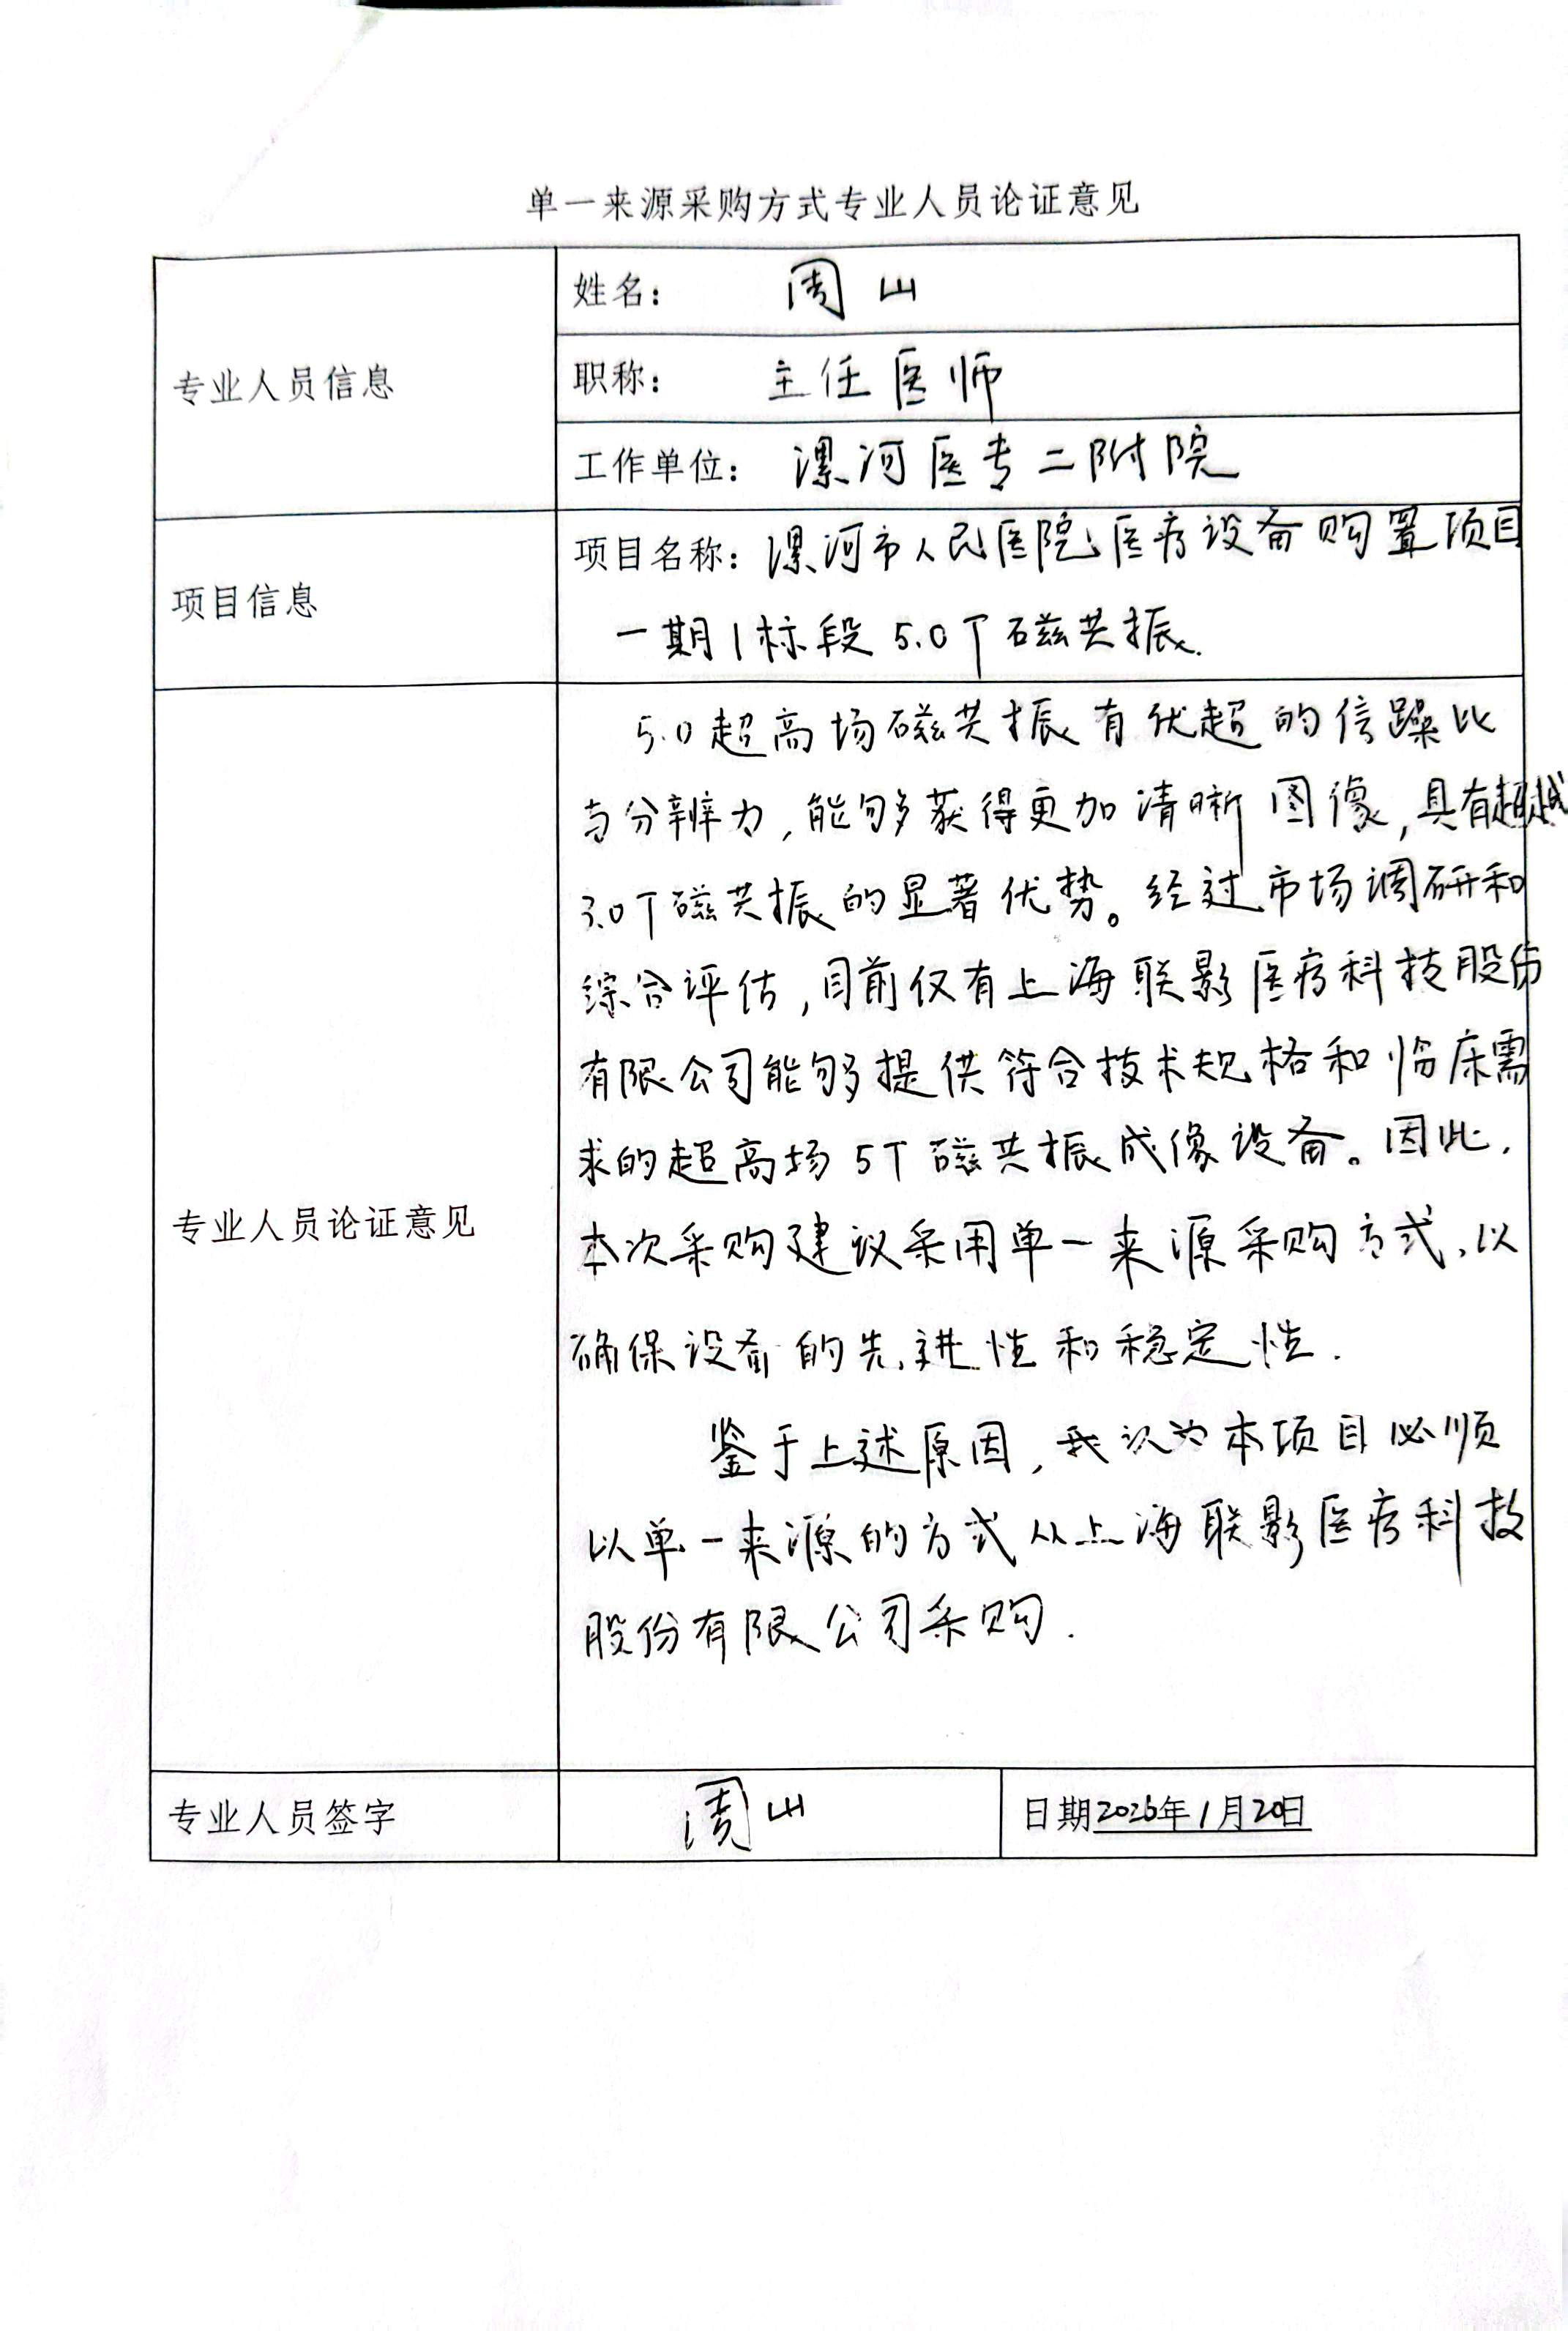 单一来源采购方式专业人员论证意见
专业人员信息
姓名: 周山
职称: 主任医师
工作单位: 漯河医专二附院
项目信息
项目名称: 漯河市人民医院医疗设备购置项目
一期1标段5.0T磁共振.
专业人员论证意见
5.0超高场磁共振有优超的信躁比
与分辨力,能够获得更加清晰图像,具有超越
3.0T磁共振的显著优势。经过市场调研和
综合评估,目前仅有上海联影医疗科技股份
有限公司能够提供符合技术规格和临床需
求的超高场5T磁共振成像设备。因此,
本次采购建议采用单一来源采购方式,以
确保设备的先进性和稳定性.
鉴于上述原因,我认为本项目必须
以单一来源的方式从上海联影医疗科技
股份有限公司采购.
专业人员签字
周山
日期2026年1月20日